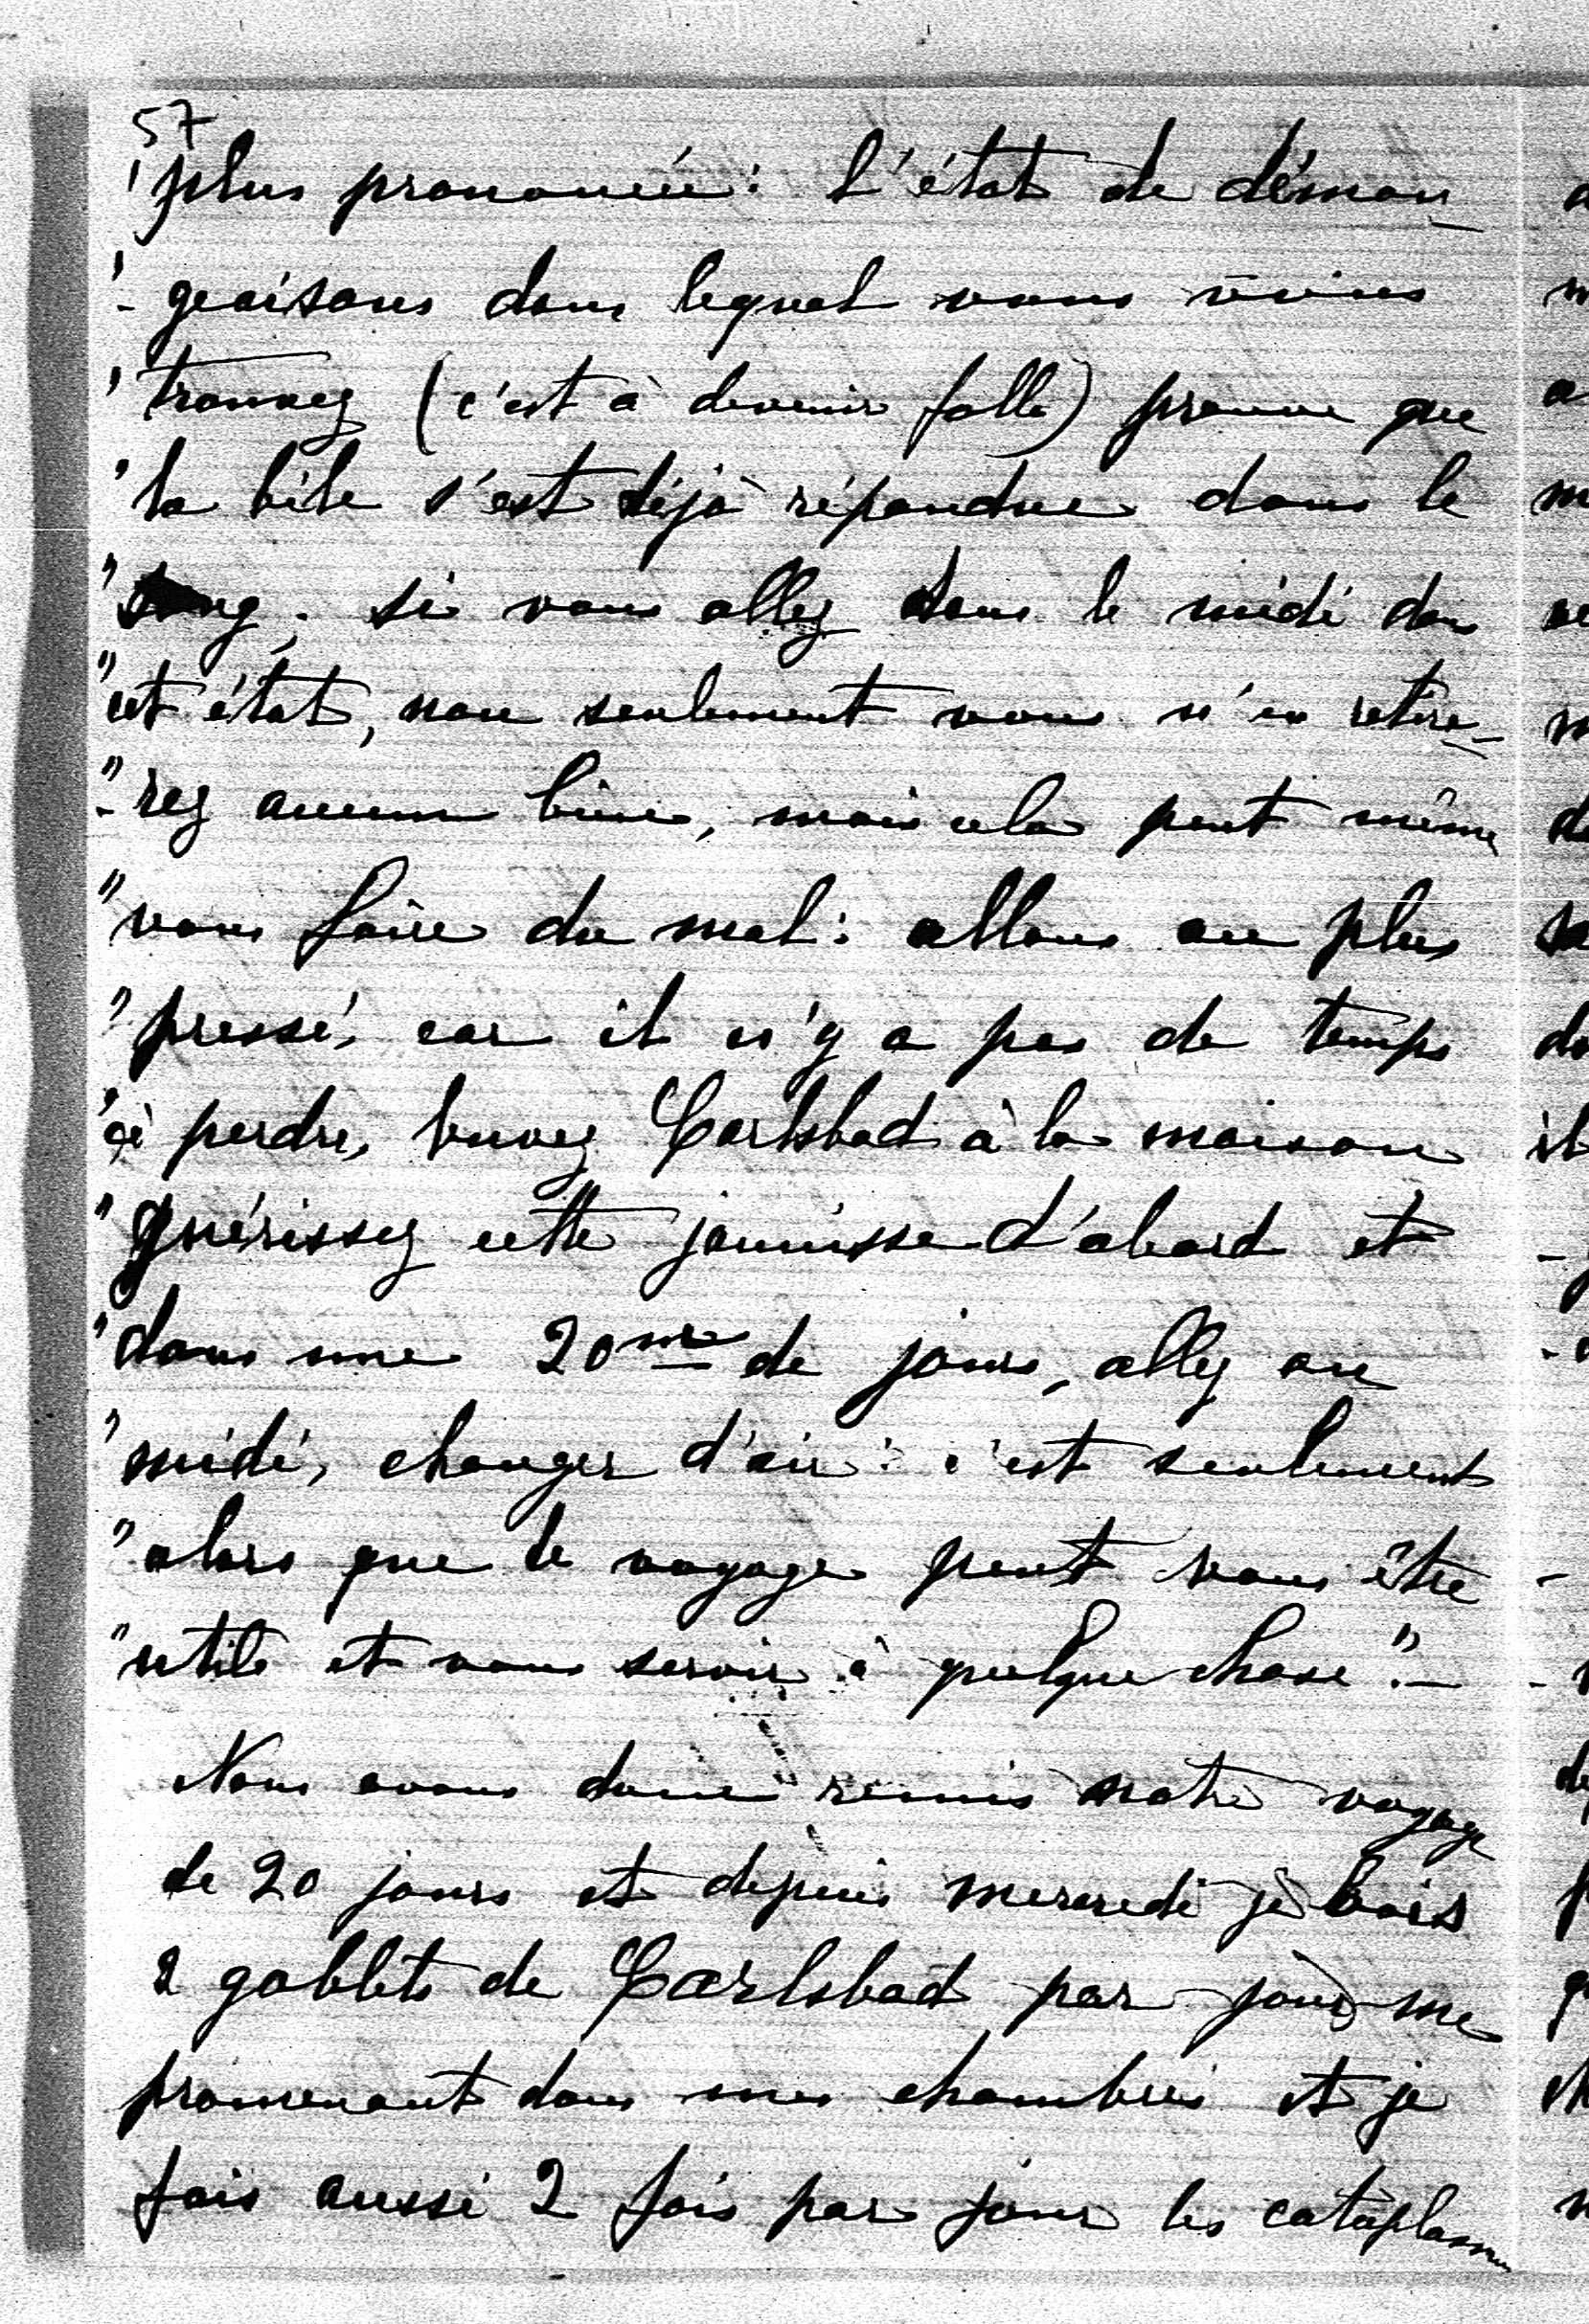 57
"plus prononcée: L'état de déman-
"-geaisons dans lequel vous vous
"trouvez (c'est à devenir folle) prouve que
"la bile s'est déjà répandue dans le
"sang; si vous allez dans le midi dans
"cet état, non seulement vous n'en retire-
"-rez aucun bien, mais cela peut même
"vous faire du mal: allons au plus
"pressé, car il n'y a pas de temps
"à perdre, buvez Carlsbad à la maison
"guérissez cette jaunisse d'abord et
"dans une 20me de jours, allez au
"midi, changer d'air: c'est seulement
"alors que le voyage peut vous être
"utile et vous servir à quelque chose".-
Nous avons donc remis notre voyage
de 20 jours et depuis mercredi je bois
2 goblets de Carlsbad par jour, me
promenant dans mes chambres et je
fais aussi 2 fois par jour les cataplasmes